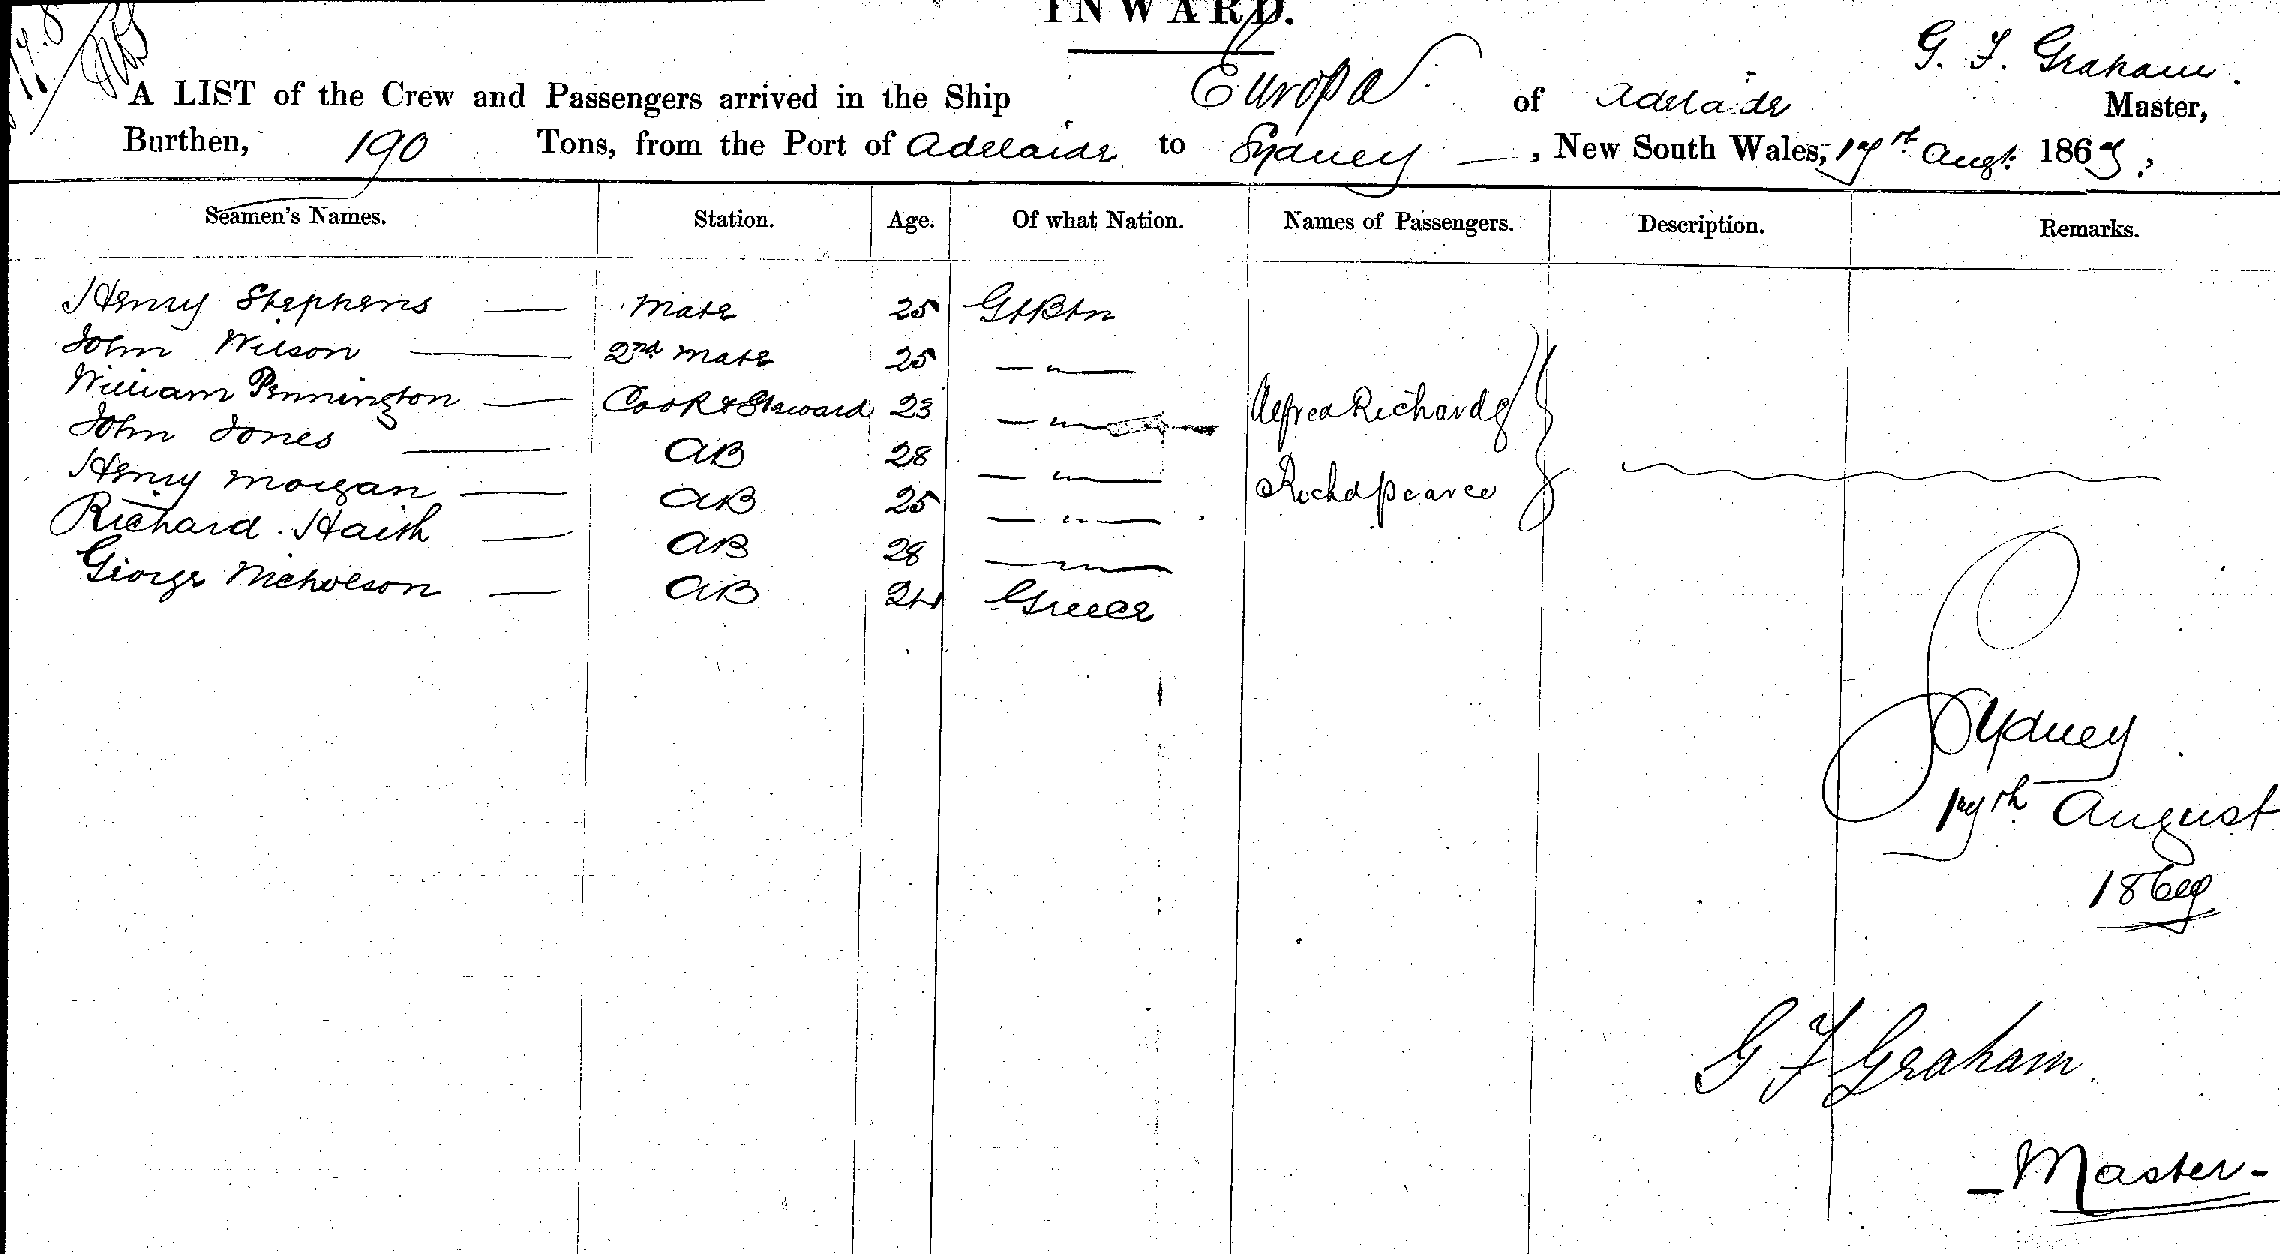 INWARD.
G. F. Graham.
A LIST of the Crew and Passengers arrived in the Ship Europa of Adelaide Master,
Burthen, 190 Tons, from the Port of Adelaide to Sydney, New South Wales, 17th Augt. 1869.
Seamen's Names. Station. Age. Of what Nation. Names of Passengers. Description. Remarks.
Henry Stephens — Mate 25 Gt Btn
John Wilson — 2nd Mate 25 — " —
William Pennington — Cook & Steward 23 — " — Alfred Richards
John Jones — AB 28 — " —
Henry Morgan — AB 25 — " — Richd Pearce
Richard Haith — AB 28 — " —
George Nicholson — AB 24 Greece
Sydney
17th August
1869
G F Graham
- Master -